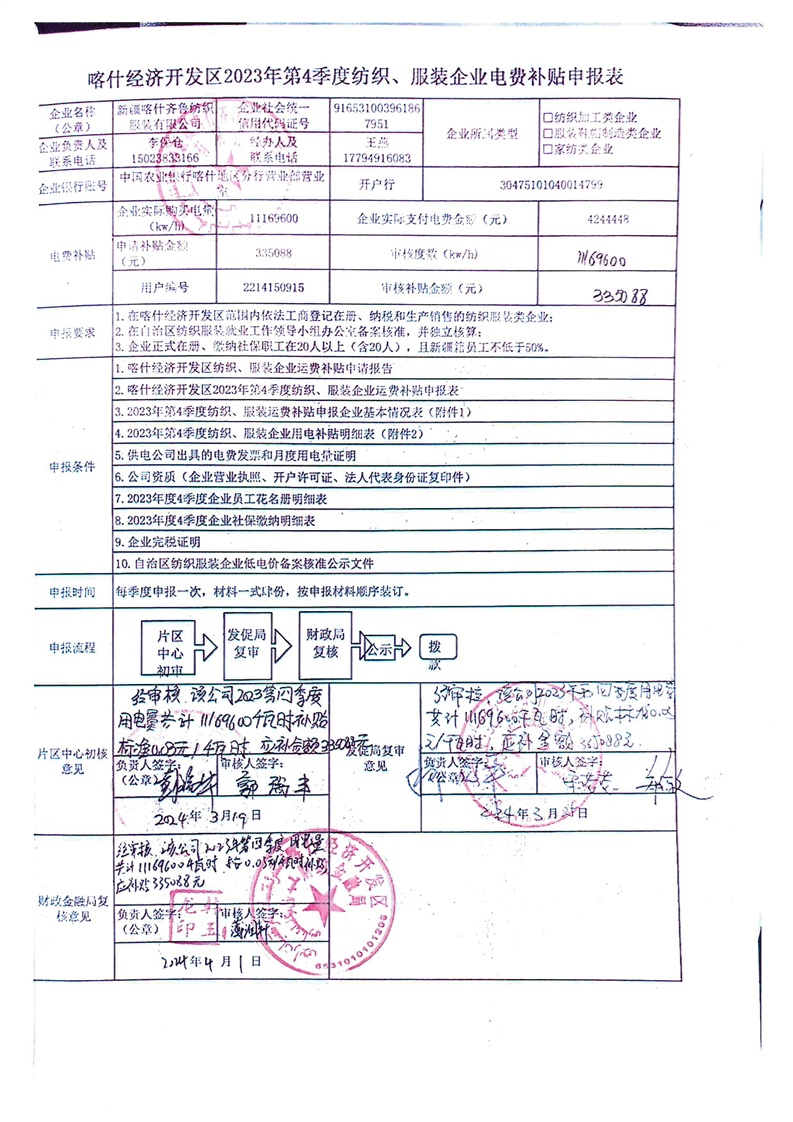 喀什经济开发区2023年第4季度纺织、服装企业电费补贴申报表
企业名称
(公章)
新疆喀什齐鲁纺织
服装有限公司
企业社会统一
信用代码证号
91653100396186
7951
企业所属类型
□纺织加工类企业
□服装鞋帽制造类企业
□家纺类企业
企业负责人及
联系电话
15023833166
经办人及
联系电话
王燕
17794916083
企业银行账号
中国农业银行喀什地区分行营业部营业
室
开户行
30475101040014799
电费补贴
企业实际购买电量
(kw/h)
11169600
企业实际支付电费金额(元)
4244448
申请补贴金额
(元)
335088
审核度数(kw/h)
11169600
用户编号
2214150915
审核补贴金额(元)
335088
申报要求
1.在喀什经济开发区范围内依法工商登记在册、纳税和生产销售的纺织服装类企业;
2.在自治区纺织服装就业工作领导小组办公室备案核准,并独立核算;
3.企业正式在册、缴纳社保职工在20人以上(含20人),且新疆籍员工不低于50%。
申报条件
1.喀什经济开发区纺织、服装企业运费补贴申请报告
2.喀什经济开发区2023年第4季度纺织、服装企业运费补贴申报表
3.2023年第4季度纺织、服装运费补贴申报企业基本情况表(附件1)
4.2023年第4季度纺织、服装企业用电补贴明细表(附件2)
5.供电公司出具的电费发票和月度用电量证明
6.公司资质(企业营业执照、开户许可证、法人代表身份证复印件)
7.2023年度4季度企业员工花名册明细表
8.2023年度4季度企业社保缴纳明细表
9.企业完税证明
10.自治区纺织服装企业低电价备案核准公示文件
申报时间
每季度申报一次,材料一式肆份,按申报材料顺序装订。
申报流程
片区
中心
初审
发促局
复审
财政局
复核
公示
拨
款
片区中心初核
意见
经审核,该公司2023第四季度
用电量共计11169600千瓦时,补贴
标准0.03元/千瓦时,应补金额335088元
负责人签字:
(公章)
审核人签字:
2024年3月19日
发促局复审
意见
经审核,该公司2023年第四季度用电量
共计11169600千瓦时,补贴标准0.03
元/千瓦时,应补金额335088元.
负责人签字:
(公章)
审核人签字:
2024年3月 日
财政金融局复
核意见
经审核,该公司2023年第四季度用电量
共计11169600千瓦时,按0.03元/千瓦时补贴
应补贴335088元
负责人签字:
(公章)
审核人签字:
2024年4月1日
经济开发区
金融局
6531010101205